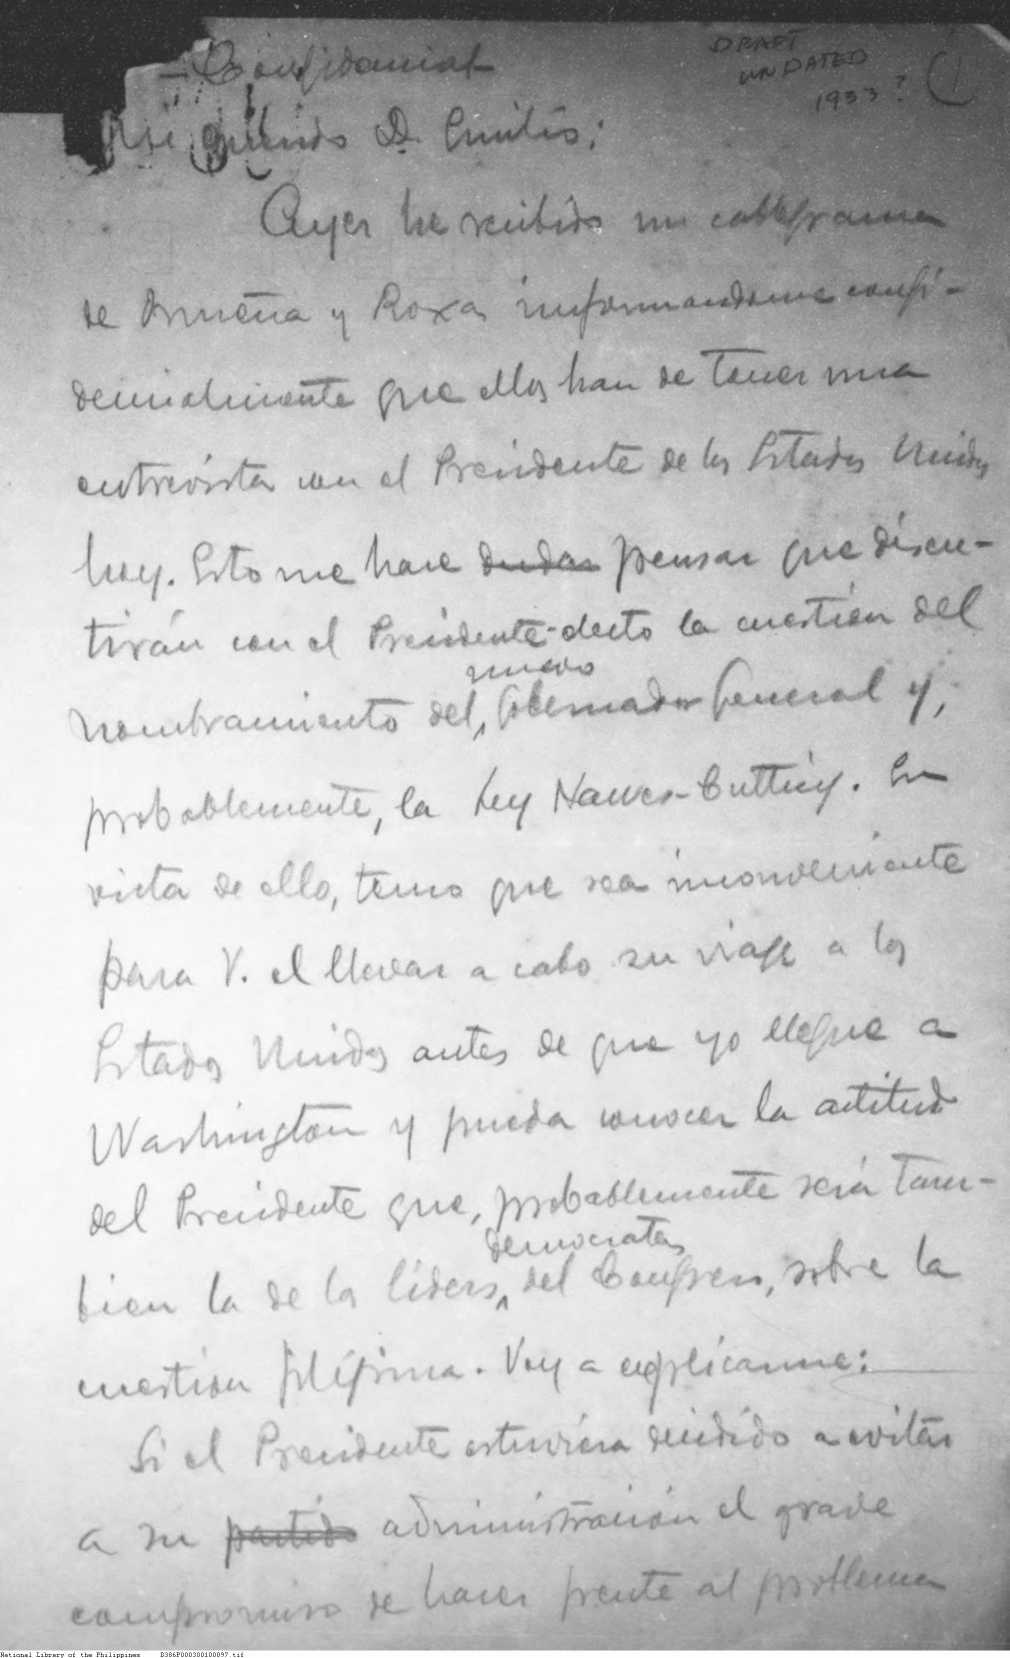 DRAFT
UNDATED
1933?
(1)
- Confidencial -
Mi querido D. Emilio:
Ayer he recibido un cablegrama
de Osmeña y Roxas informandome confi-
dencialmente que ellos han de tener una
entrevista con el Presidente de los Estados Unidos
hoy. Esto me hace dudar pensar que discu-
tirán con el Presidente-electo la cuestion del
nombramiento del nuevo Gobernador General y,
probablemente, la Ley Hawes-Cutting. En
vista de ello, temo que sea inconveniente
para V. el llevar a cabo su viaje a los
Estados Unidos antes de que yo llegue a
Washington y pueda conocer la actitud
del Presidente que, probablemente será tam-
bien la de los líders democratas del Congreso, sobre la
cuestion filipina. Voy a explicarme:
Si el Presidente estuviera decidido a evitar
a su partido administración el grave
compromiso de hacer frente al problema
National Library of the Philippines D386P000300100097.tif